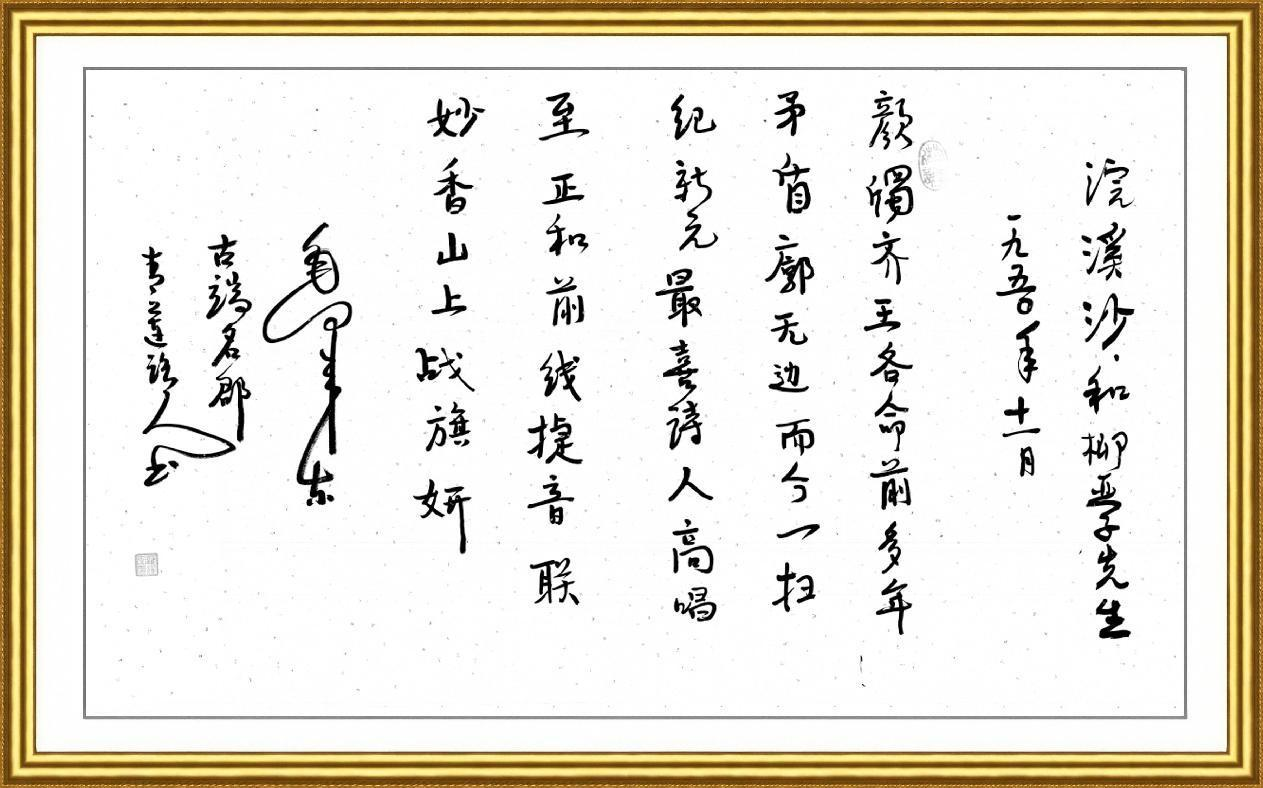 浣溪沙·和柳亚子先生
一九五〇年十一月
颜斶齐王各命前多年
矛盾廓无边而今一扫
纪新元最喜诗人高唱
至正和前线捷音联
妙香山上战旗妍
毛泽东
古端名郡
青莲路人书